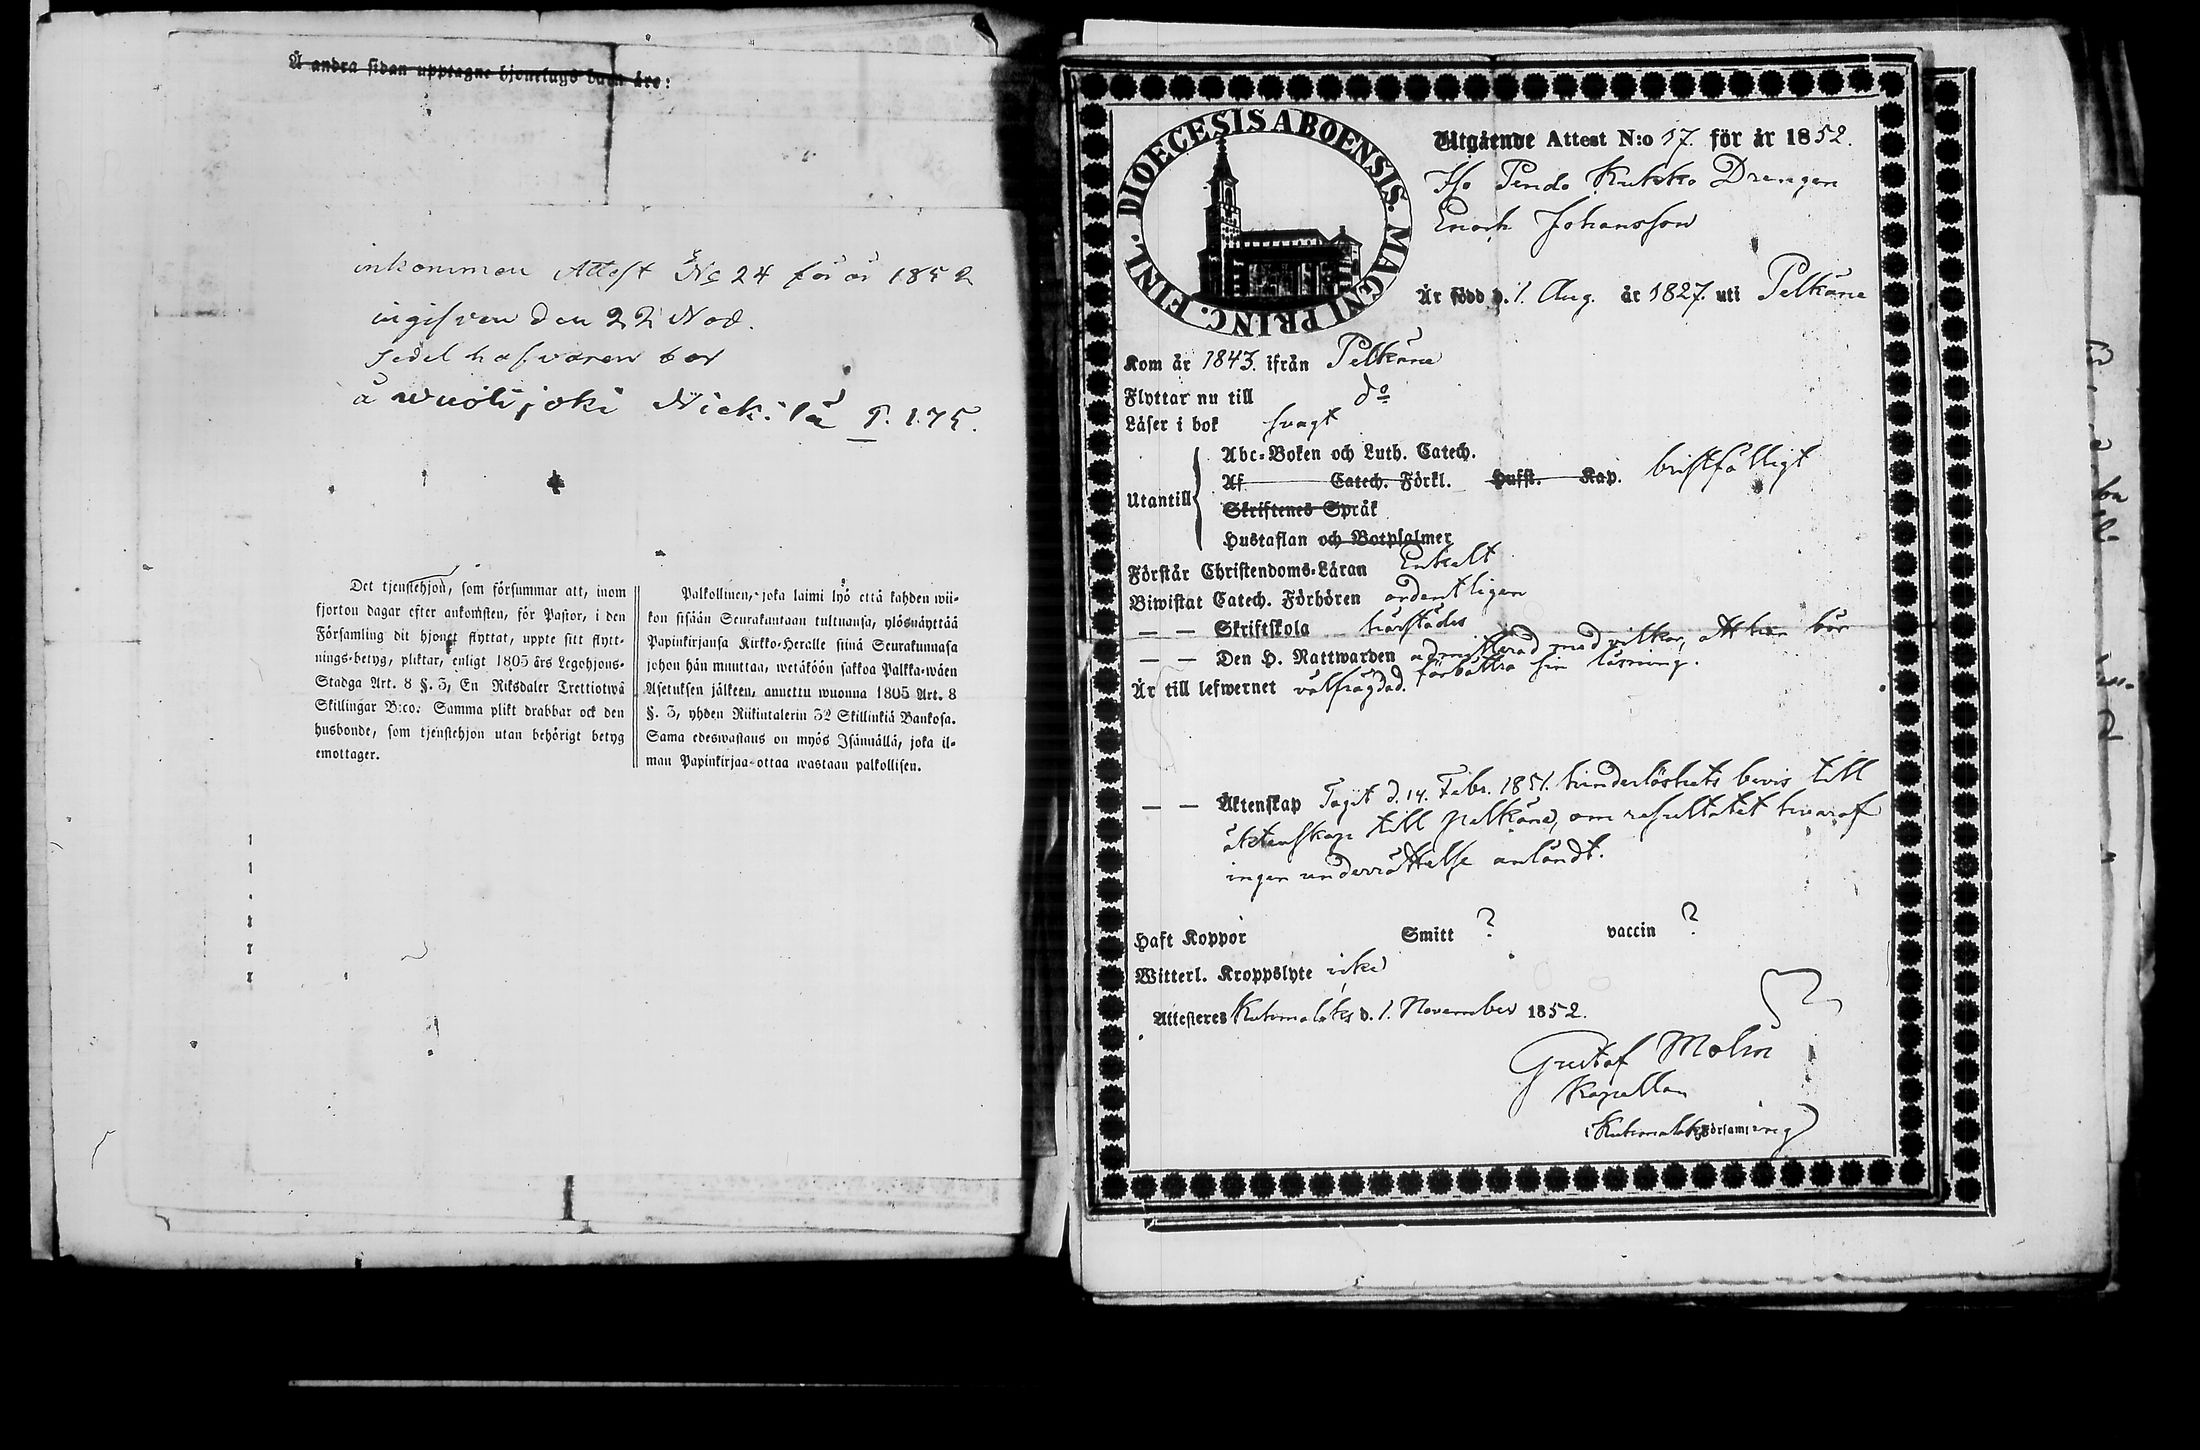 Å andra sidan upptagne hjonelags barn äro:
inkommen Attest No 24 för år 1852
ingifven den 22 Nov.
sedel hafvaren bor
å wuolijoki Nickilä P. 175.
Det tjenstehjon, som försummar att, inom
fjorton dagar efter ankomsten, för Pastor, i den
Församling dit hjonet flyttat, uppte sitt flytt-
nings-betyg, pliktar, enligt 1805 års Legohjons-
Stadga Art. 8 §. 3, En Riksdaler Trettiotwå
Skillingar B:co. Samma plikt drabbar ock den
husbonde, som tjenstehjon utan behörigt betyg
emottager.
Palkollinen, joka laimi lyö että kahden wii-
kon sisään Seurakuntaan tultuansa, ylösnäyttää
Papinkirjansa Kirkko-Heralle siinä Seurakunnasa
johon hän muuttaa, wetäköön sakkoa Palkka-wäen
Asetuksen jälkeen, annettu wuonna 1805 Art. 8
§. 3, yhden Riikintalerin 32 Skillinkiä Bankosa.
Sama edeswastaus on myös Isännällä, joka il-
man Papinkirjaa ottaa wastaan palkollisen.
DIOECESIS ABOENSIS. MAGNI PRINC. FINL.
Utgående Attest N:o 17. för år 1852.
Iso Pendo Kukko Drengen
Enoch Johansson
Är född d. 1. Aug. år 1827. uti Pelkäne
Kom år 1843. ifrån Pelkäne
Flyttar nu till do
Läser i bok svagt
Utantill
Abc-Boken och Luth. Catech.
Af Catech. Förkl. Hufst. Kap. bristfälligt
Skriftenes Språk
Hustaflan och Botpsalmer
Förstår Christendoms-Läran Enkelt
Biwistat Catech. Förhören ordentligen
— — Skriftskola härstädes
— — Den H. Nattwarden admitterad med vilkor, att han bör
förbättra sin läsning.
Är till lefwernet välfrägdad.
— — Äktenskap Tagit d. 14. Febr. 1851. hinderlöshets bevis till
äktenskap till Pelkäne, om resultatet hvaraf
ingen underrättelse anländt.
Haft Koppor Smitt ? vaccin ?
Witterl. Kroppslyte icke
Attesteras Kuhmalaks d. 1. November 1852.
Gustaf Molin
Kapellan
i Kuhmalaks Församling